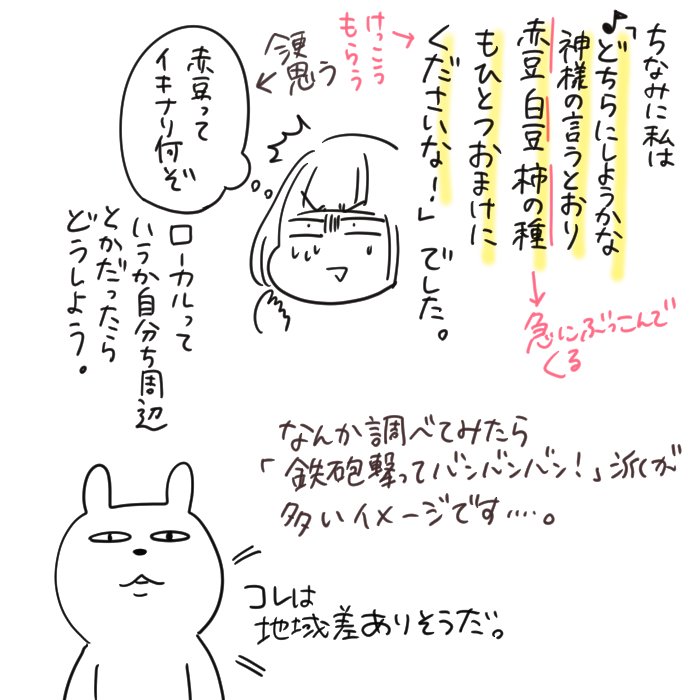 ちなみに私は
♪「どちらにしようかな
神様の言うとおり
赤豆 白豆 柿の種
もひとつおまけに
くださいな！」でした。
→急にぶっこんで
くる
けっこう
もらう→
今更
思う
赤豆って
イキナリ何ぞ
ローカルって
いうか自分ち周辺
とかだったら
どうしよう。
なんか調べてみたら
「鉄砲撃ってバンバンバン！」派が
多いイメージです‥‥。
コレは
地域差ありそうだ。